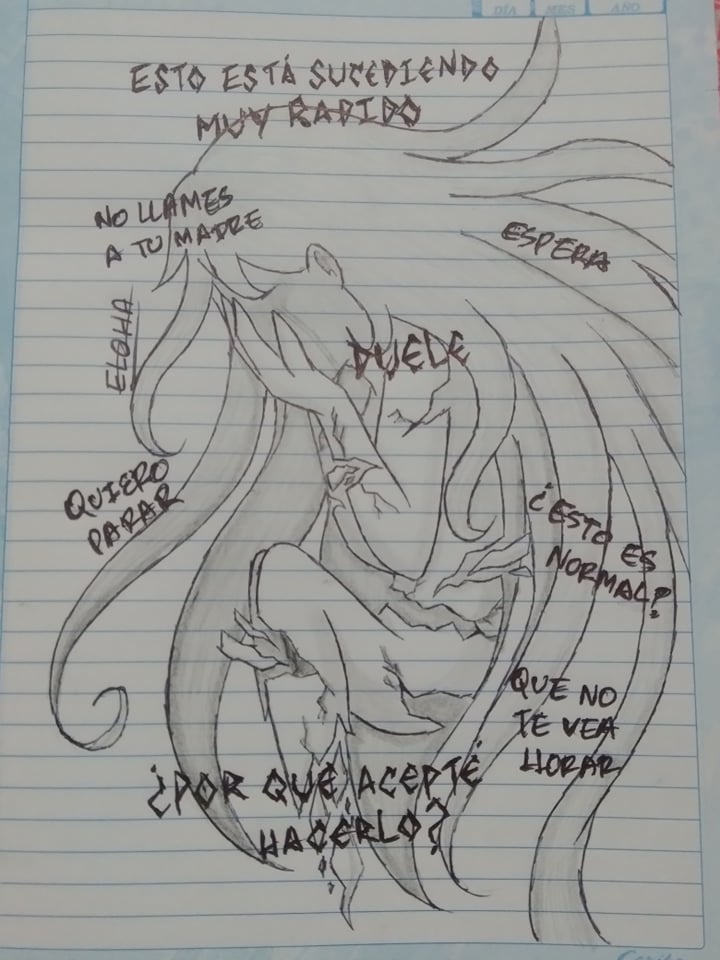 DÍA MES AÑO
ESTO ESTÁ SUCEDIENDO
MUY RAPIDO
NO LLAMES
A TU MADRE
ESPERA
ELOHA
DUELE
QUIERO
PARAR
¿ESTO ES
NORMAL?
QUE NO
TE VEA
LLORAR
¿POR QUÉ ACEPTÉ
HACERLO?